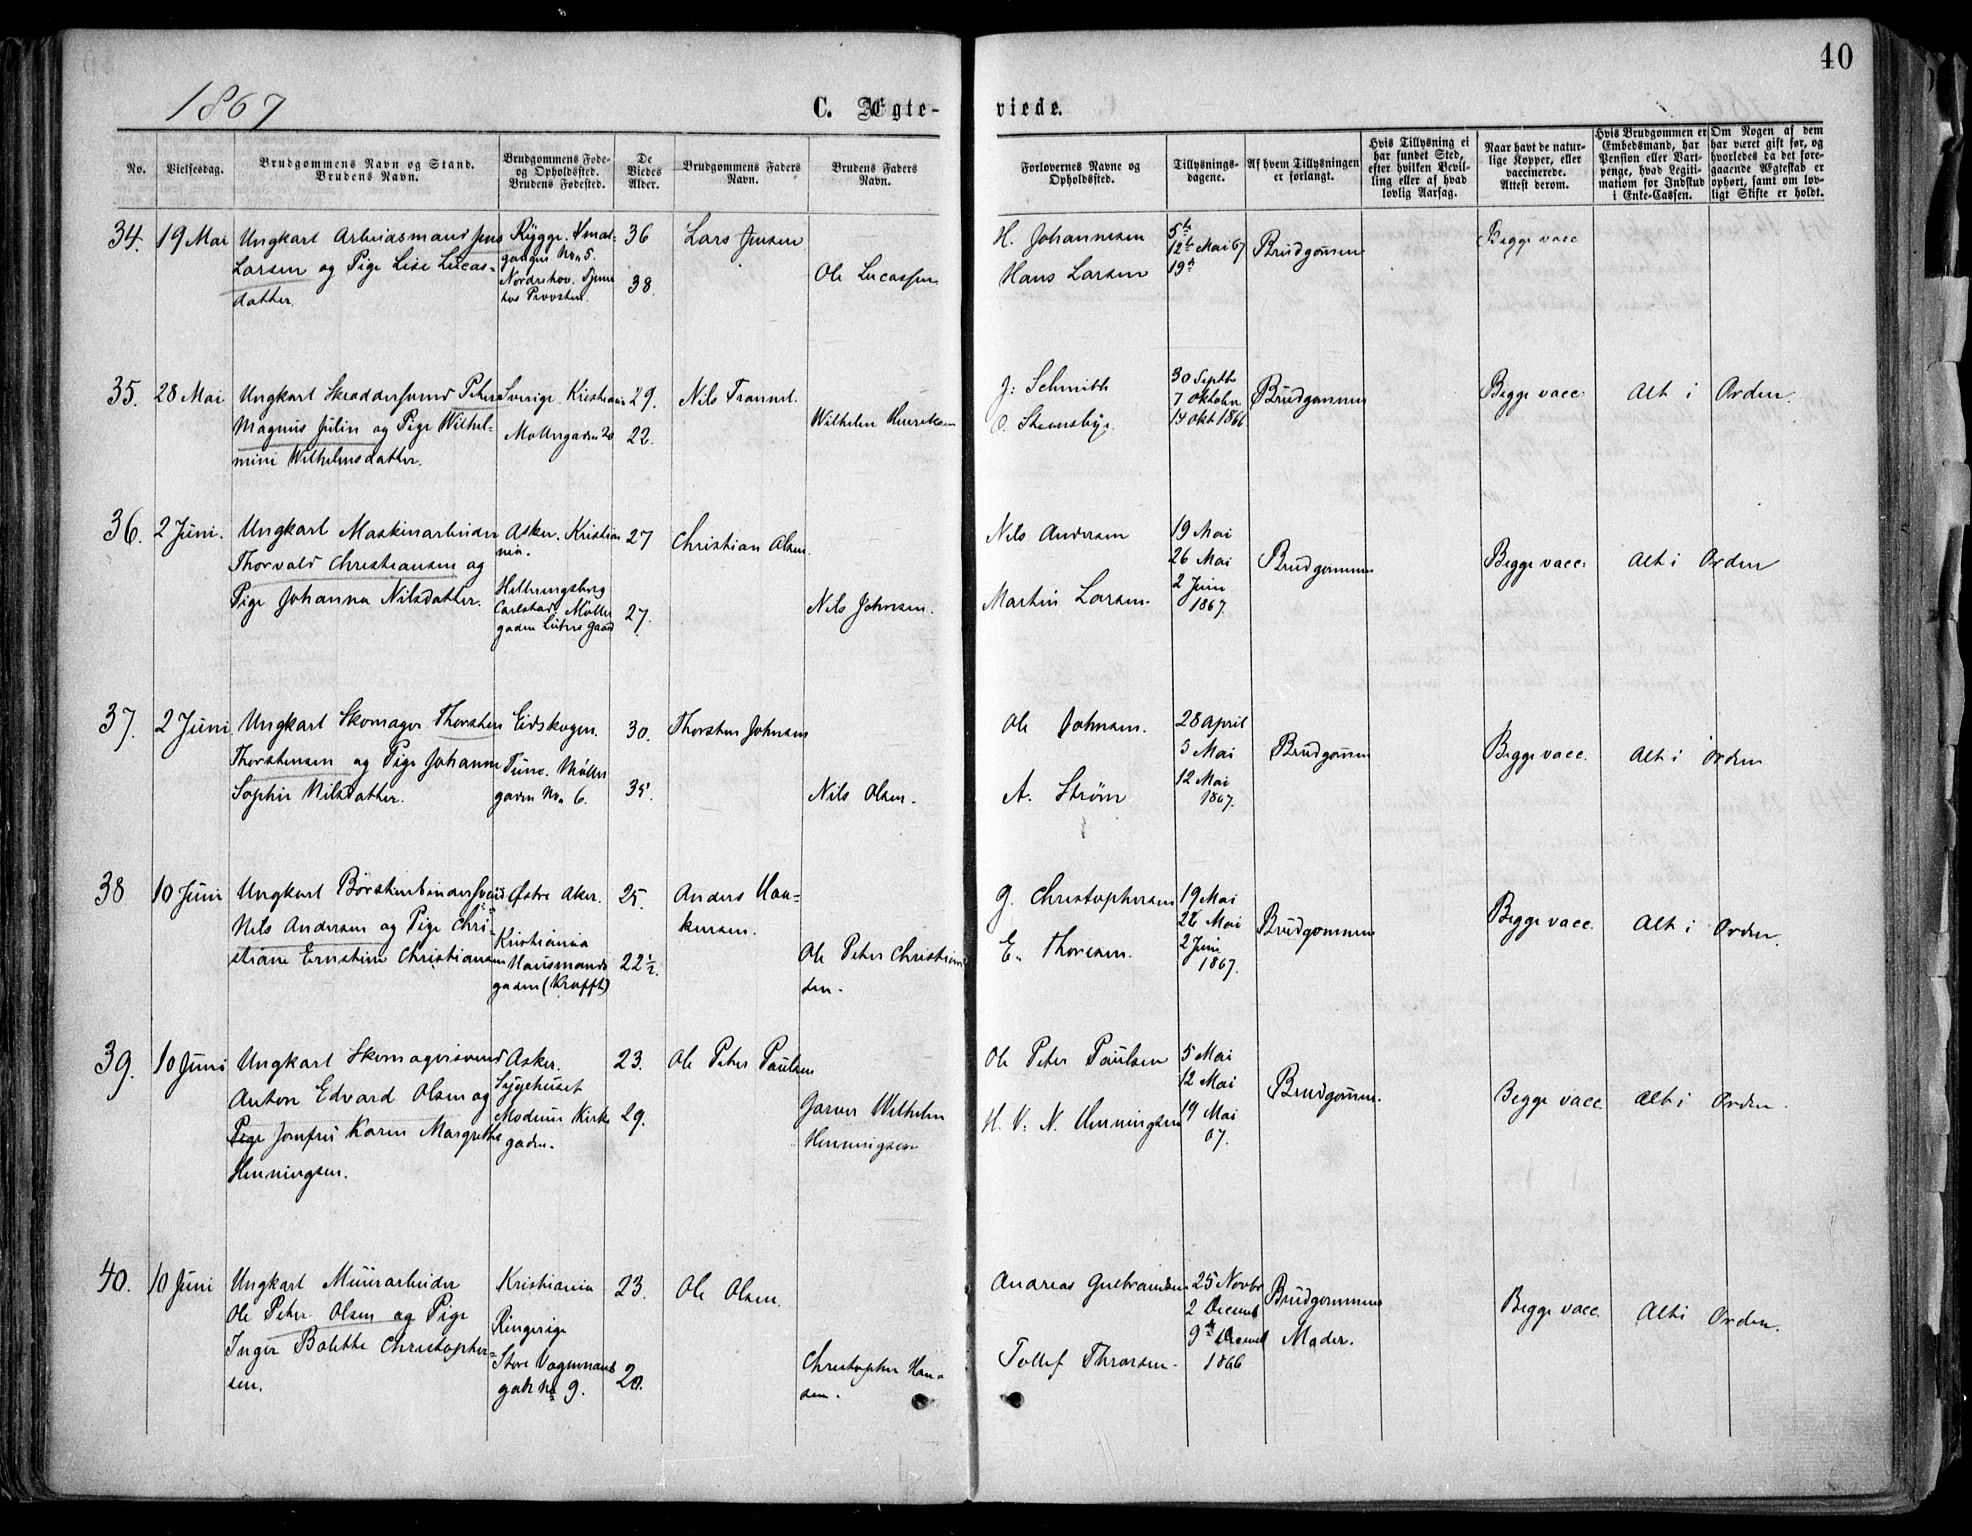 40
1867
C. Ægte-
viede.
No.
Vielsesdag.
Brudgommens Navn og Stand.
Brudens Navn.
Brudgommens Føde-
og Opholdssted.
Brudens Fødested.
De
Viedes
Alder.
Brudgommens Faders
Navn.
Brudens Faders
Navn.
Forlovernes Navne og
Opholdssted.
Tillysnings-
dagene.
Af hvem Tillysningen
er forlangt.
Hvis Tillysning ei
har fundet Sted,
efter hvilken Bevil-
ling eller af hvad
lovlig Aarsag.
Naar havt de natur-
lige Kopper, eller
vaccinerede.
Attest derom.
Hvis Brudgommen er
Embedsmand, har
Pension eller Vart-
penge, hvad Legiti-
mation for Indskud
i Enke-Cassen.
Om Nogen af dem
har været gift før, og
hvorledes da det fore-
gaaende Ægteskab er
ophørt, samt om lov-
ligt Skifte er holdt.
34. 19 Mai
Ungkarl Arbeidsmand Jens
Larsen og Pige Lise Lucas-
datter.
Rygge.
gangen No 5.
Nordrehov.
hos Provsten.
36
38.
Lars Jensen
Ole Lucassen
H. Johannesen
Hans Larsen
5te
12te Mai 67
19de
Brudgommen
Begge vacc
35. 28 Mai
Ungkarl Skræddersvend Peter
Magnus Julin og Pige Wilhel-
mine Wilhelmsdatter.
Sverige. Kristiania
Møllergaden 20
29.
22.
Nils
Wilhelm Henriksen
J: Schmith
O. Steensbye
30 Septb
7 Oktober
14 Okt 1866
Brudgommen
Begge vacc.
Alt i Orden.
36. 2 Juni.
Ungkarl Maskinarbeider
Thorvald Christiansen og
Pige Johanna Nilsdatter.
Asker. Kristia
nia.
Helsingsberg
Carlstad. Møller
gaden Gaard
27
27.
Christian Olsen.
Nils Johnsen.
Nils Andersen
Martin Larsen.
19 Mai
26 Mai
2 Juni
1867.
Brudgommen
Begge vacc.
Alt i Orden
37. 2 Juni
Ungkarl Skomager Thorsten
Thorstensen og Pige Johanne
Sophie Nilsdatter.
Eidskogen.
Tune. Møller
gaden No 6.
30.
35.
Thorsten Johnsen
Nils Olsen.
Ole Johnsen.
A. Strøm
28 April
5 Mai
12 Mai
1867.
Brudgommen
Begge vacc.
Alt i Orden
38 10 Juni
Ungkarl Børstenbindersvend
Nils Andersen og Pige Chri-
stiane Ernstine Christiansen
Østre Aker.
Kristiania
Hausmands
gaden (Krafft)
25.
22 1/2.
Anders Haa-
kensen.
Ole Peter Christian
sen.
G. Christophersen
E. Thoresen.
19 Mai
26 Mai
2 Juni
1867.
Brudgommen
Begge vacc.
Alt i Orden.
39. 10 Juni
Ungkarl Skomagersvend
Anton Edvard Olsen og
Pige Jomfru Karen Margrethe
Henningsen.
Asker.
Sygehuset
Modum Kirke
gaden.
23.
29.
Ole Peter Paulsen
Garver Wilhelm
Henningsen
Ole Peter Paulsen
H. V. N. Henningsen
5 Mai
12 Mai
19 Mai
67.
Brudgommen.
Begge vacc.
Alt i Orden.
40. 10 Juni
Ungkarl Muurarbeider
Ole Peter Olsen og Pige
Inger Bolette Christopher-
sen.
Kristiania
Ringerige
Store Vognmands
gade No 9.
23.
20.
Ole Olsen.
Christopher Han-
sen.
Andreas Gulbrandsen
Tollef Throrsen.
25 Novbr
2 Decemb
9de Decemb
1866
Brudgommens
Moder.
Begge vacc.
Alt i Orden.